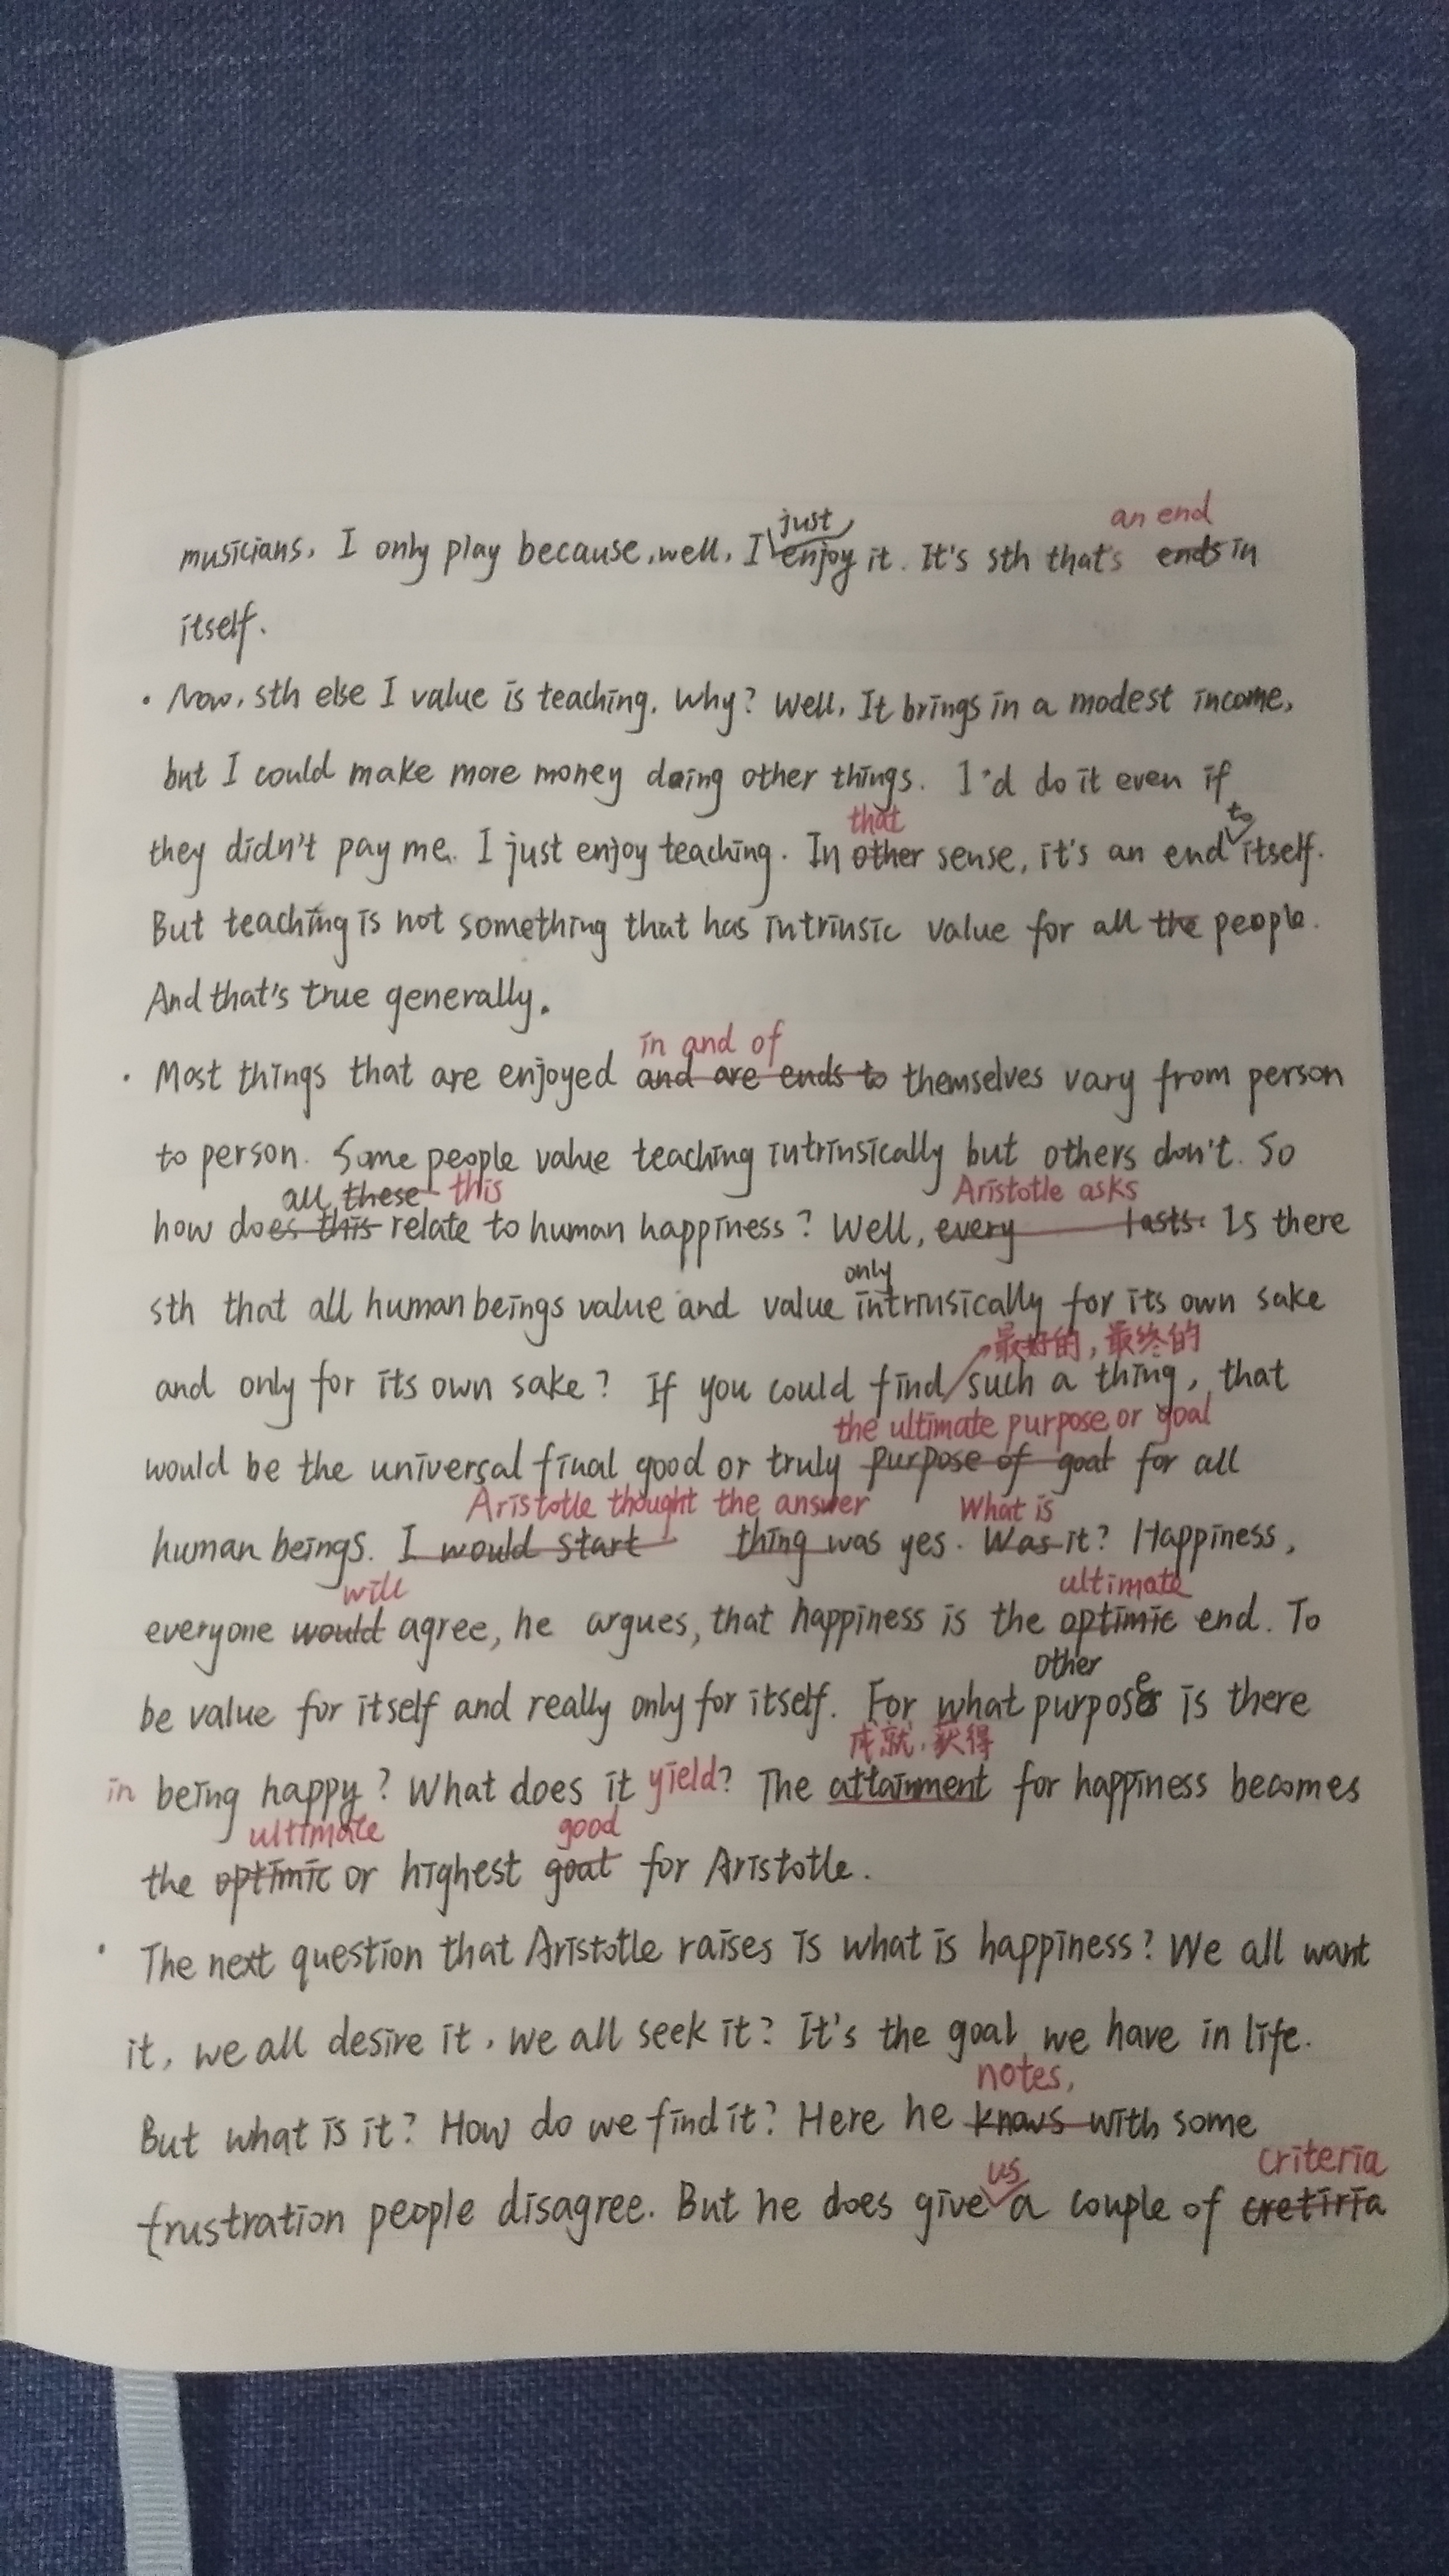 just an end
musicians, I only play because, well, I enjoy it. It's sth that's ends in
itself.
· Now, sth else I value is teaching. Why? Well, It brings in a modest income,
but I could make more money doing other things. I'd do it even if
that to
they didn't pay me. I just enjoy teaching. In other sense, it's an end itself.
But teaching is not something that has intrinsic value for all the people.
And that's true generally.
in and of
· Most things that are enjoyed and are ends to themselves vary from person
to person. Some people value teaching intrinsically but others don't. So
all these this Aristotle asks
how does this relate to human happiness? Well, every lasts: Is there
only
sth that all human beings value and value intrinsically for its own sake
最好的,最终的
and only for its own sake? If you could find such a thing, that
the ultimate purpose or goal
would be the universal final good or truly purpose of goat for all
Aristotle thought the answer What is
human beings. I would start thing was yes. Was it? Happiness,
will ultimate
everyone would agree, he argues, that happiness is the optimic end. To
other
be value for itself and really only for itself. For what purpose is there
成就,获得
in being happy? What does it yield? The attainment for happiness becomes
ultimate good
the optimic or highest goat for Aristotle.
· The next question that Aristotle raises is what is happiness? We all want
it, we all desire it, we all seek it? It's the goal we have in life.
notes,
But what is it? How do we find it? Here he knows with some
us criteria
frustration people disagree. But he does give a couple of cretiria